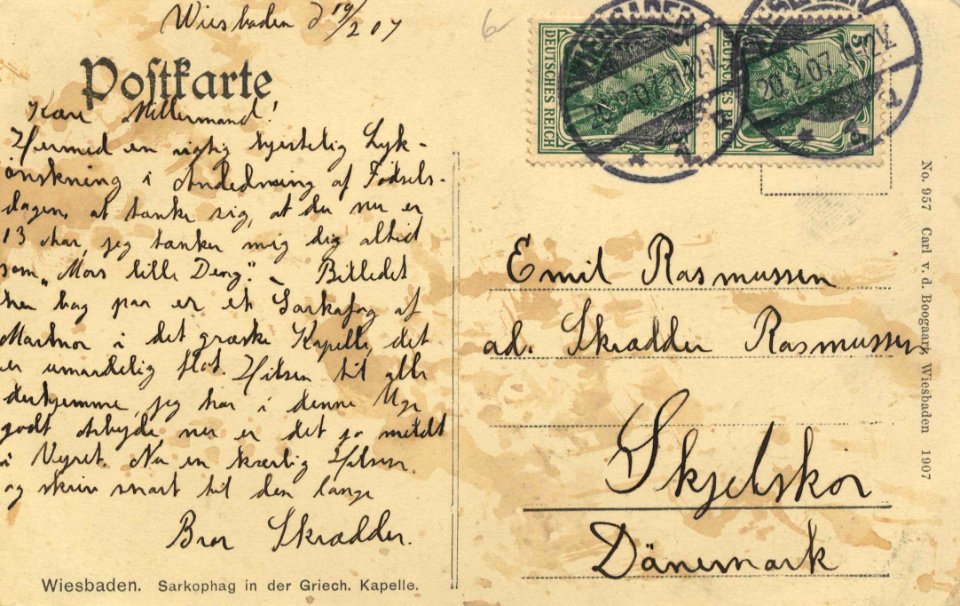 Wiesbaden d 19/2 07
6
Postkarte
Kære Millermand!
Hermed en rigtig hjertelig Lyk-
ønskning i Anledning af Fødsels-
dagen, at tænke sig, at du nu er
13 Aar, jeg tænker mig dig altid
som „Mors lille Dreng". – Billedet
her bag paa er et Sarkofag af
Marmor i det græske Kapelle, det
er umaadelig flot. Hilsen til alle
derhjemme, jeg har i denne Uge
godt Arbejde, nu er det jo mildt
i Vejret. Nu en kærlig Hilsen
og skriv snart til den lange
Bror Skrædder.
Wiesbaden. Sarkophag in der Griech. Kapelle.
DEUTSCHES REICH
5
DEUTSCHES REICH
5
WIESBADEN
20.2.07.11-12V.
* 1 d
WIESBADEN
20.2.07.11-12V.
* 1 d
Emil Rasmussen
ad. Skrædder Rasmussen
Skjelskør
Dänemark
No. 957 Carl v. d. Boogaart, Wiesbaden 1907